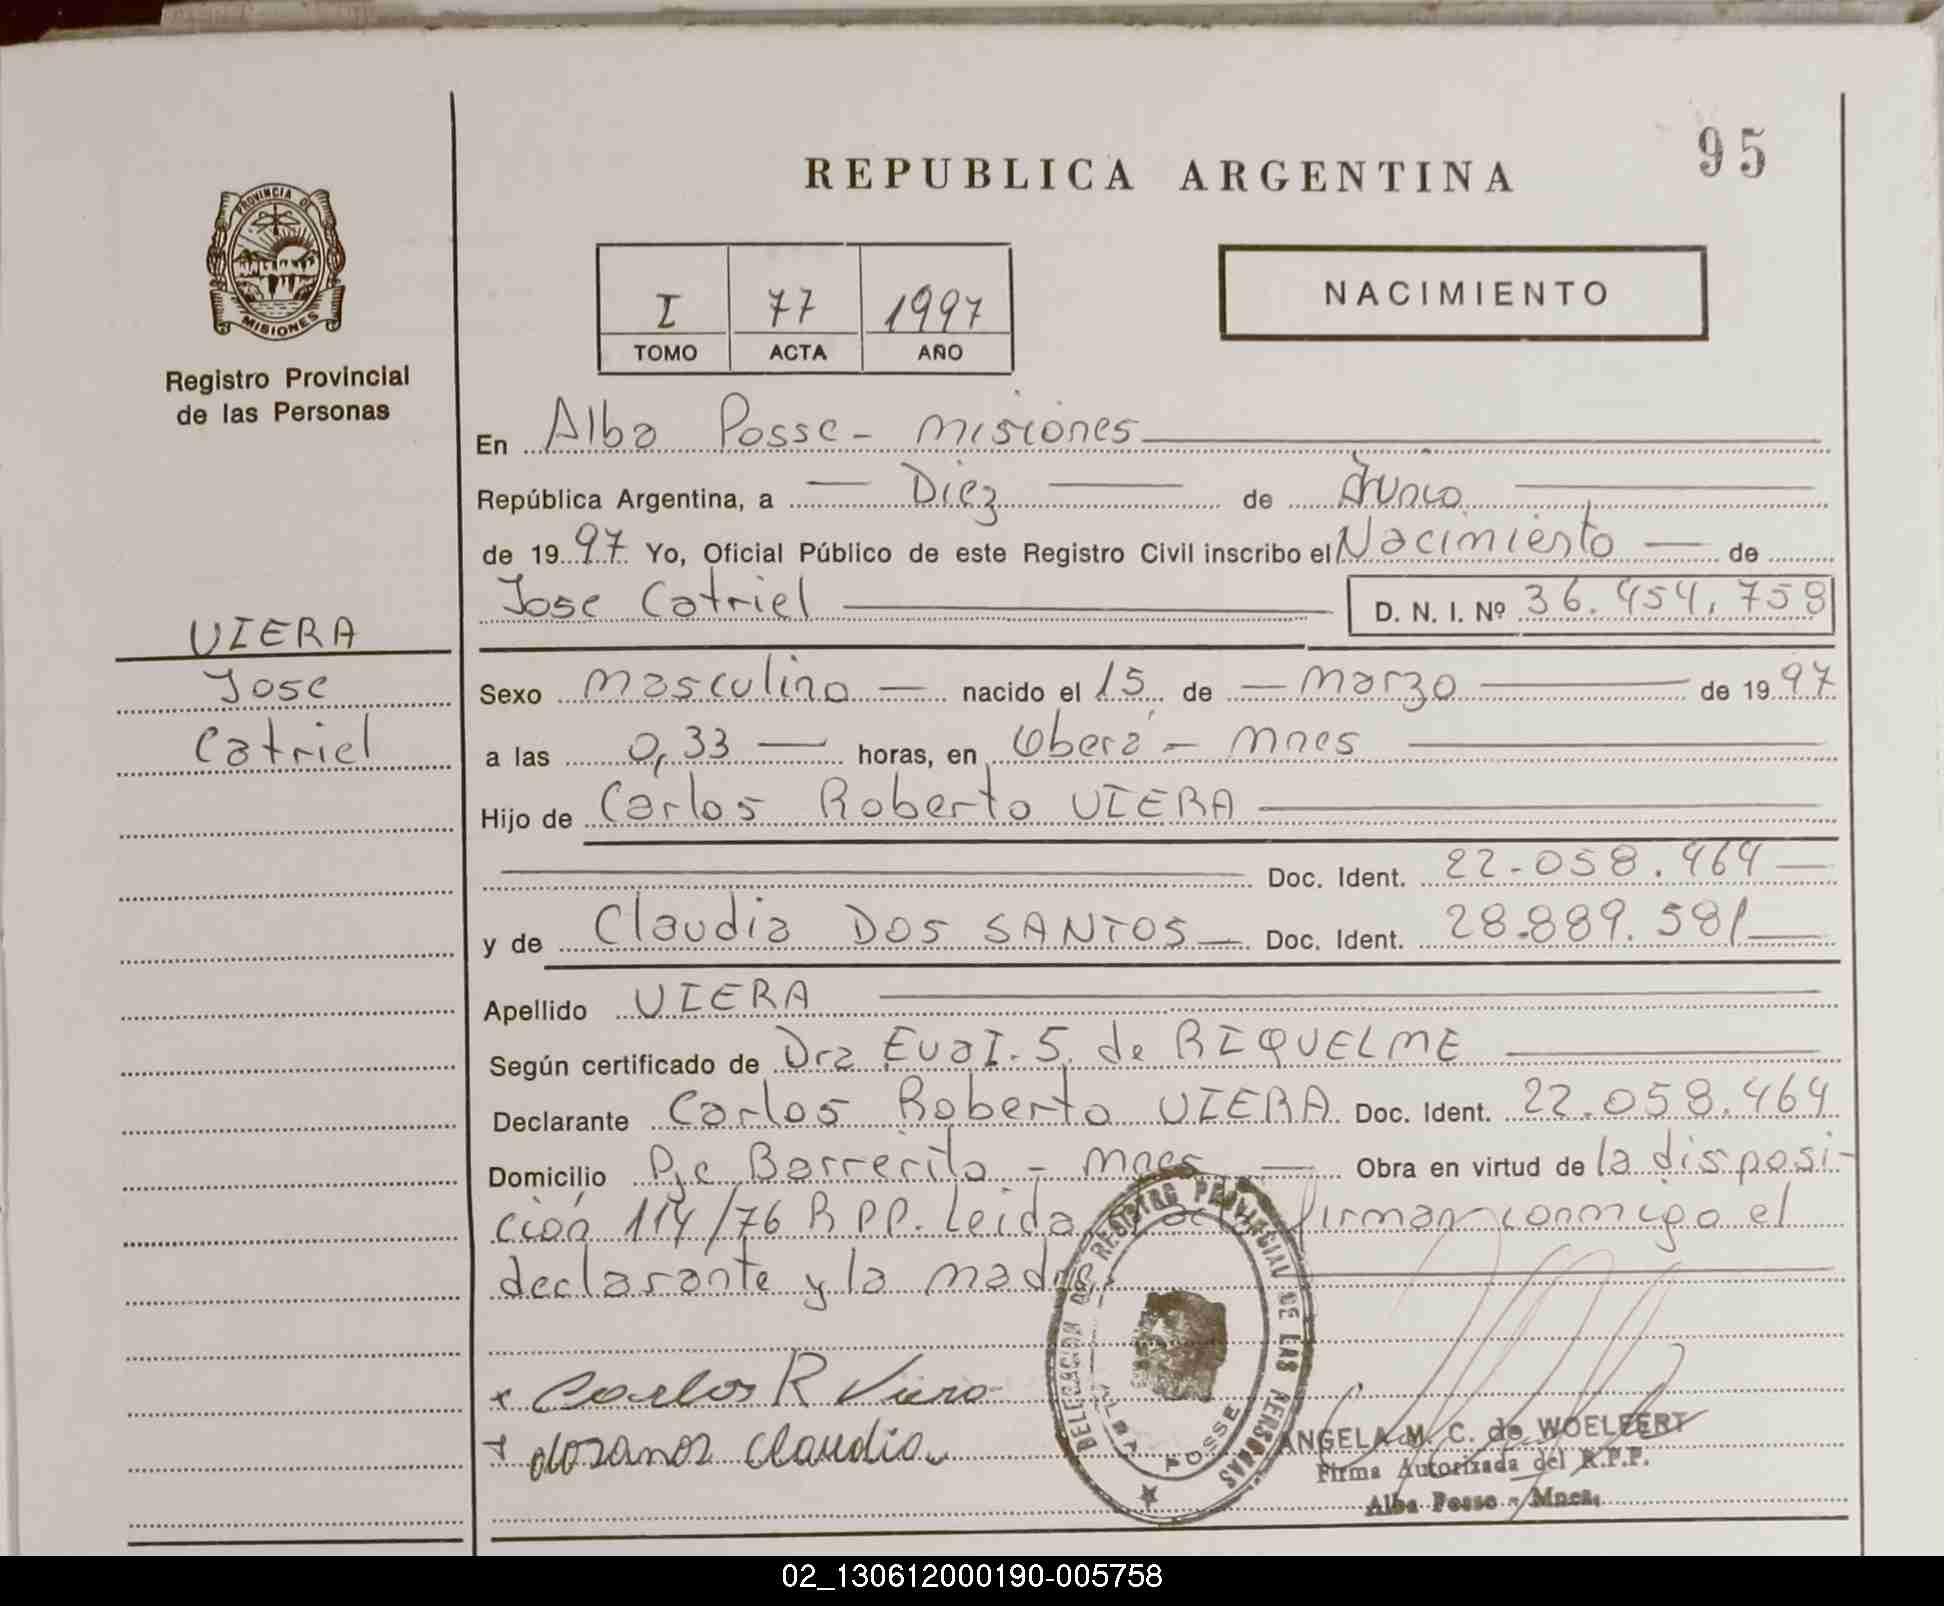 95
REPUBLICA ARGENTINA
PROVINCIA DE
MISIONES
Registro Provincial
de las Personas
I 77 1997
TOMO ACTA AÑO
NACIMIENTO
En Alba Posse - Misiones
República Argentina, a Diez de Junio
de 1997 Yo, Oficial Público de este Registro Civil inscribo el Nacimiento de
Jose Catriel D. N. I. Nº 36.454.758
VIERA
Jose
Catriel
Sexo Masculino nacido el 15 de Marzo de 1997
a las 0,33 horas, en Oberá - Mnes
Hijo de Carlos Roberto VIERA
Doc. Ident. 22.058.464
y de Claudia DOS SANTOS Doc. Ident. 28.889.581
Apellido VIERA
Según certificado de Dra Eva I. S. de RIQUELME
Declarante Carlos Roberto VIERA Doc. Ident. 22.058.464
Domicilio Pje Barrerito - Mnes Obra en virtud de la disposi-
ción 114/76 R.P.P. Leida firman conmigo el
declarante y la madre.
DELEGACION DE REGISTRO PROVINCIAL DE LAS PERSONAS
ALBA POSSE
Carlos R Viera
dosanos Claudia
ANGELA M. C. de WOELFERT
Firma Autorizada del R.P.P.
Alba Posse - Mnes.
02_130612000190-005758